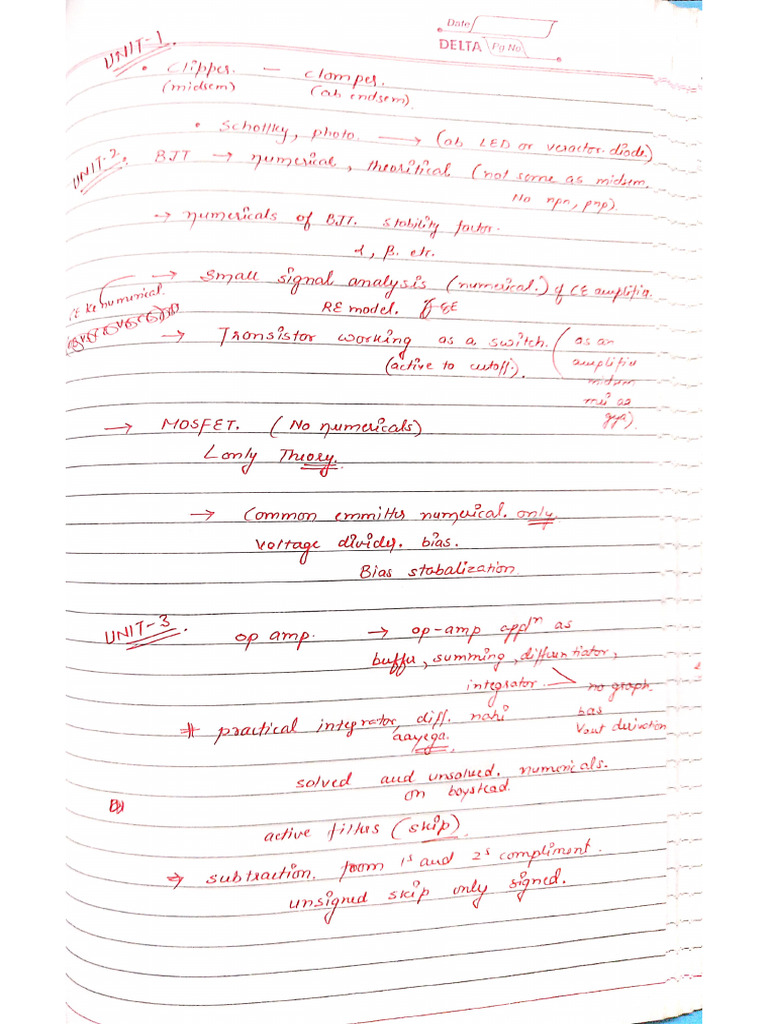 Date
DELTA Pg No
UNIT-1.
• Clipper. — Clamper.
(midsem) (ab endsem)
• Schottky, photo. → (ab LED or veractor diode)
UNIT-2. BJT → numerical, theoritical (not same as midsem.
No npn, pnp).
→ numericals of BJT. stability factor.
α, β. etc.
→ Small signal analysis (numerical.) of CE amplifier.
CE ke numerical.
RE model.
→ Transistor working as a switch. (as an
(active to cutoff). amplifier
midsem
mei aa
gya).
→ MOSFET. (No numericals)
only Theory.
→ Common emmitter numerical. only
voltage divider. bias.
Bias stabalization
UNIT-3. op amp. → op-amp appln as
buffer, summing, differentiator,
integrator. no graph.
bas
Vout derivation
# practical integrator, diff. nahi
aayega.
solved and unsolved. numericals.
on boystead.
active filters (skip)
⇒ subtraction. from 1s and 2s compliment.
unsigned skip only signed.